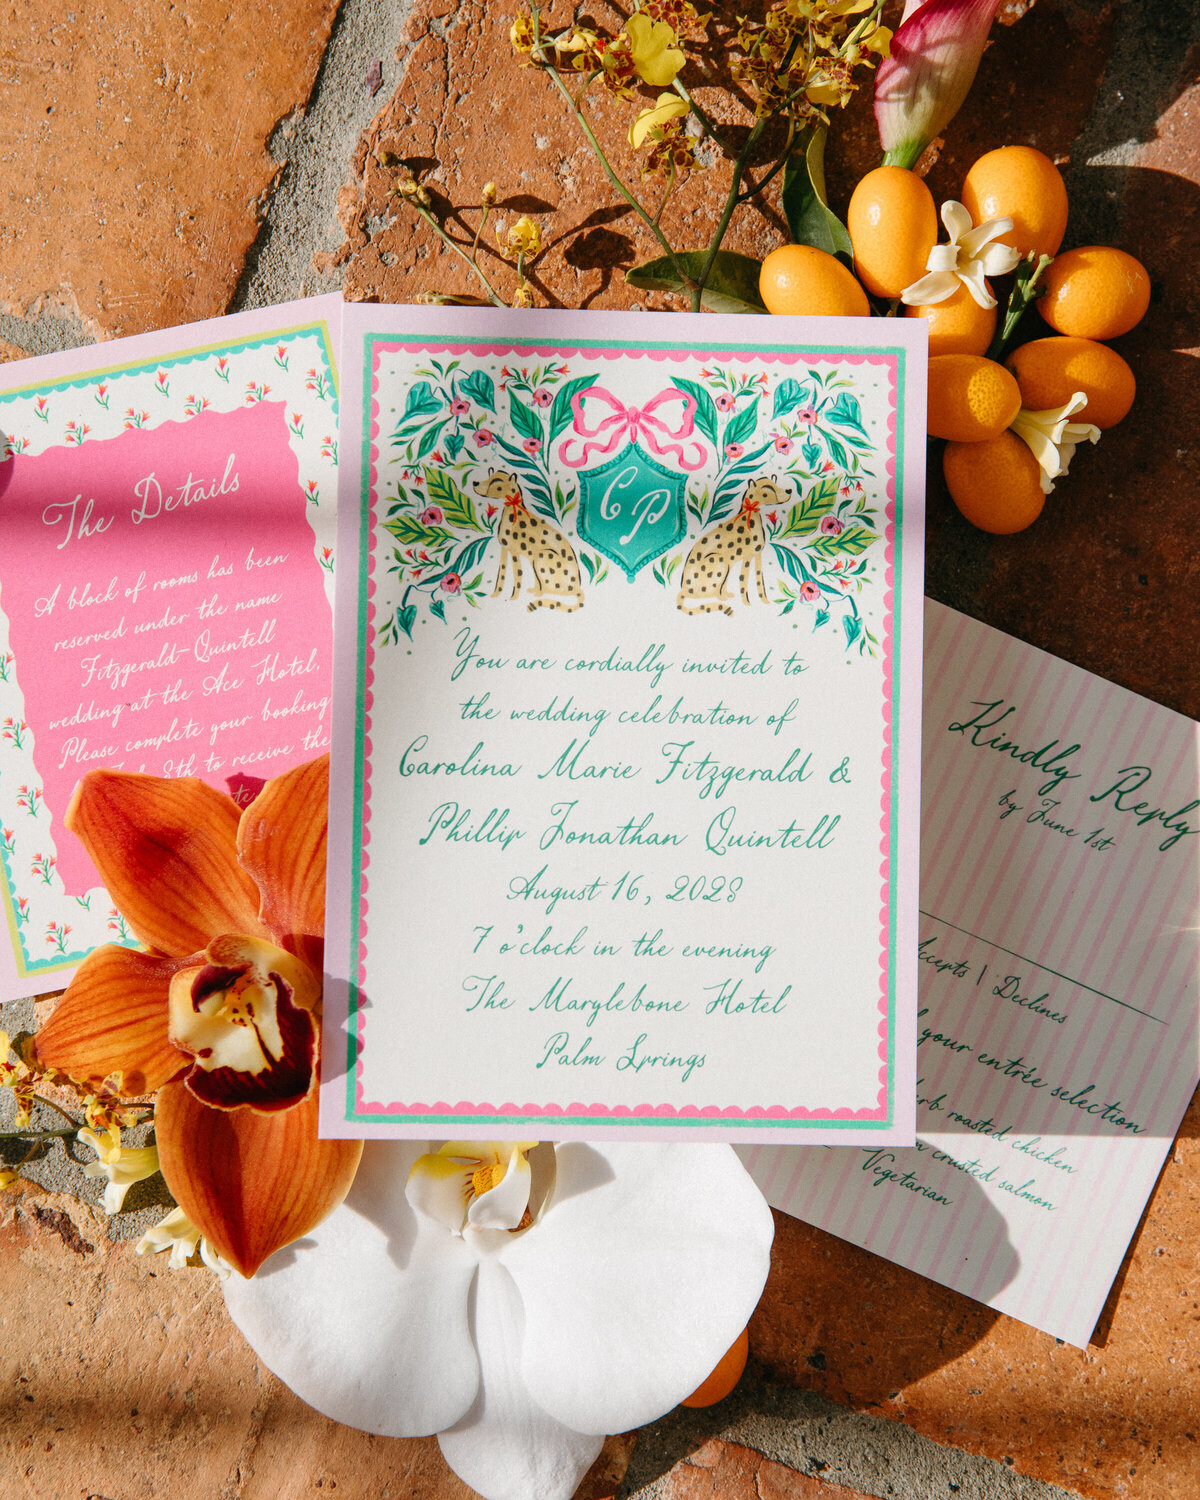 The Details
A block of rooms has been
reserved under the name
Fitzgerald-Quintell
wedding at the Ace Hotel.
Please complete your booking
8th to receive the
C P
You are cordially invited to
the wedding celebration of
Carolina Marie Fitzgerald &
Phillip Jonathan Quintell
August 16, 2028
7 o'clock in the evening
The Marylebone Hotel
Palm Springs
Kindly Reply
by June 1st
Accepts | Declines
your entrée selection
roasted chicken
crusted salmon
Vegetarian